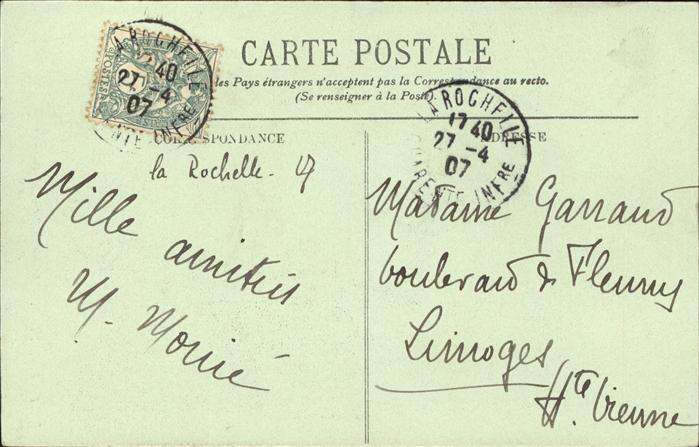 CARTE POSTALE
les Pays étrangers n'acceptent pas la Correspondance au recto.
(Se renseigner à la Poste)
CORRESPONDANCE
ADRESSE
LA ROCHELLE
17 40
27 -4
07
CHARENTE INFRE
LA ROCHELLE
17 40
27 -4
07
CHARENTE INFRE
POSTES
la Rochelle -
Mille amitiés
M.
Madame Garraud
boulevard de Fleurus
Limoges
Hte Vienne